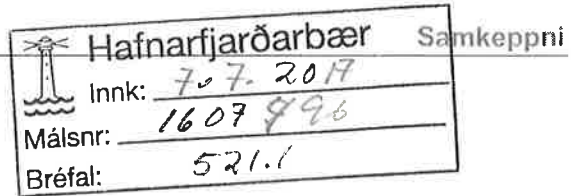 Hafnarfjarðarbær
Samkeppni
Innk: 7.7. 2017
Málsnr: 1607
Bréfal: 521.1